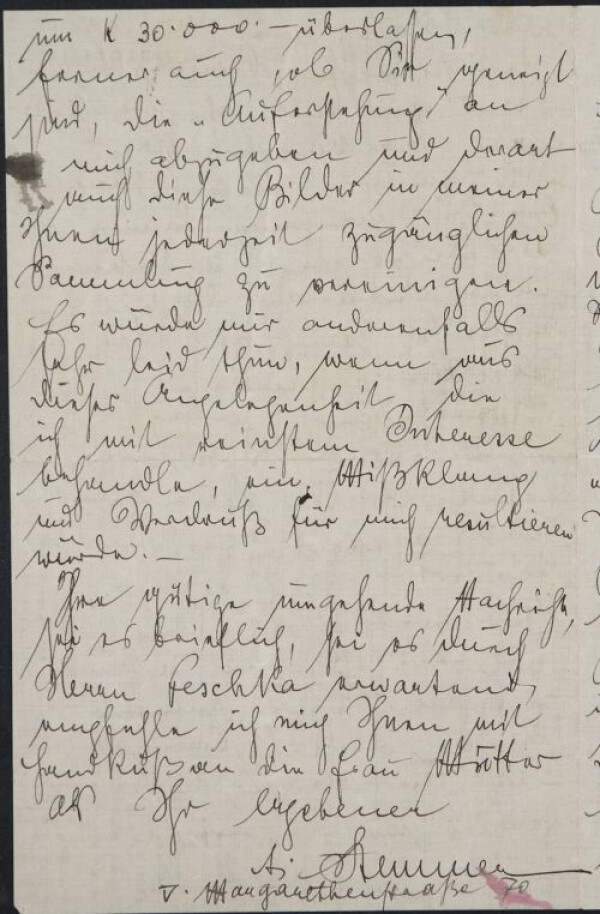 um K 30.000.— überlassen,
ferner auch ob Sie geneigt
sind, die „Auferstehung" an
mich abzugeben und derart
auch diese Bilder in meiner
Ihnen jederzeit zugänglichen
Sammlung zu vereinigen.
Es würde mir anderenfalls
sehr leid thun, wenn aus
dieser Angelegenheit, die
ich mit reinstem Interesse
behandle, ein Mißklang
und Verdruß für mich resultieren
würde.—
Ihre gütige umgehende Nachricht,
sei es brieflich, sei es durch
Herrn Peschka erwartend
empfehle ich mich Ihnen mit
Handkuß an die Frau Mutter
als Ihr ergebener
V. Margarethenstraße 70